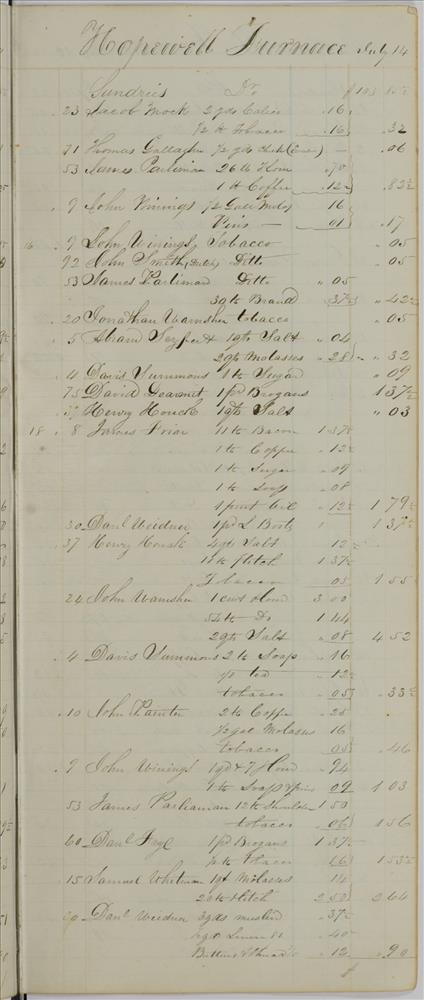 Hopewell Furnace July 14
Sundries Dr. $103 85½
23 Jacob Mock 2 yds Calico .16
½ lb Tobacco .16 .32
71 Thomas Gallagher ½ yd Check — .06
53 James Parliman 26 lb Flour .70
1 lb Coffee .12½ .82½
9 John Winings ½ Gall Molas 16
Pins — 01 .17
16 9 John Winings Tobacco .05
92 John Smith (Dutch) Ditto .05
53 James Parliman Ditto .05
3 qts Brand .37½ .42½
20 Jonathan Wamsher tobacco .05
5 Hiram 1 qt Salt .04
2 qts Molasses .28 .32
4 Davis Summons 1 lb Sugar .09
75 David 1 pd Brogans 1 37½
37 Henry Houck 1 qt Salt .03
18 8 James Friar 11 lb Bacon 1 37½
1 lb Coffee .12½
1 lb Sugar .09
1 lb Soap .08
1 pint Oil .12½ 1 79½
30 Danl Weidner 1 pd L Boots 1 37½
37 Henry Houck 4 qts Salt 12
11 lb flitch 1 37½
Tobacco 05 1 55
24 John Wamsher 1 cwt flour 3 00
54 lb Do 1 44
2 qts Salt .08 4 52
4 Davis Summons 2 lb Soap .16
tea .12½
tobacco .05 .33½
10 John Painter 2 lb Coffee .25
½ gal Molasses 16
tobacco .05 .46
9 John Winings 1 qr & 7 flour .94
1 lb Soap & pins 09 1 03
53 James Parliaman 12 lb Shoulder 1 50
tobacco .06 1 56
60 Danl 1 pd Brogans 1 37½
½ lb tobacco 16 1 53½
15 Samuel Whitman 1 qt Molasses 14
20 lb flitch 2 50 2 64
30 Danl Weidner 3 yds muslin .37½
Linen .40
Buttons & thread .12 .90
$